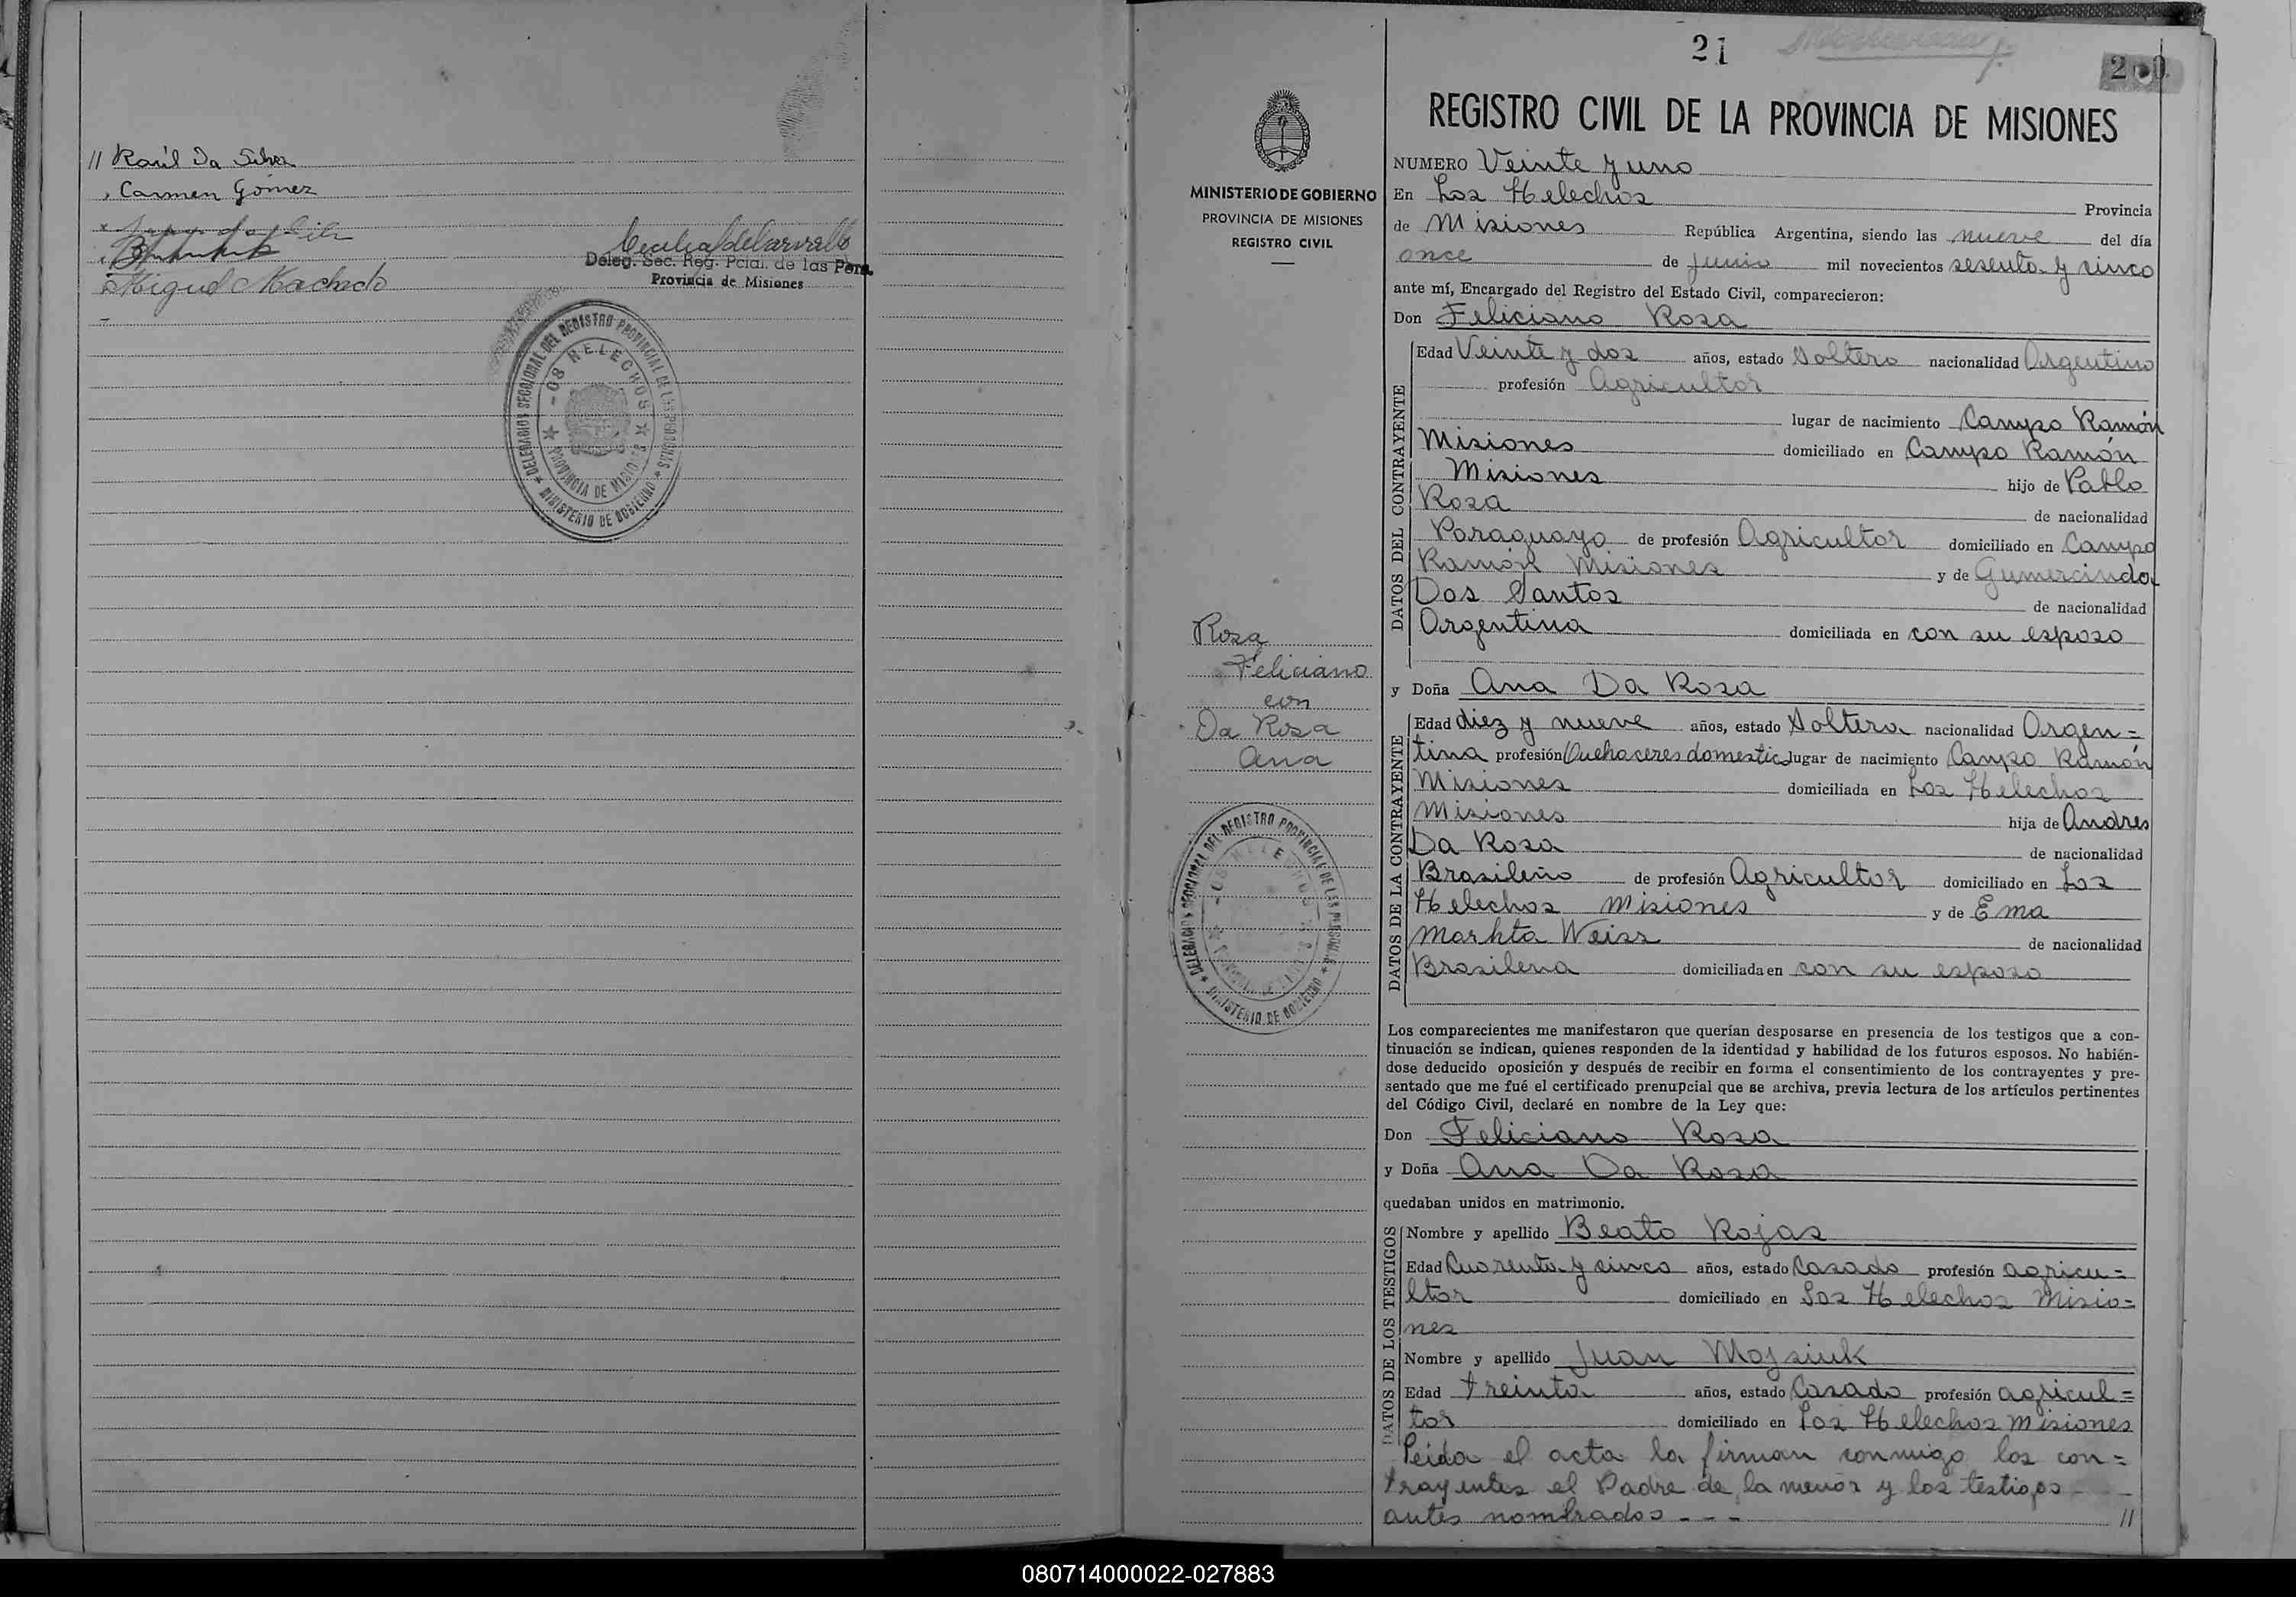 // Raúl Da Silva
Carmen Gómez
Miguel Machado
Deleg. Sec. Reg. Pcial. de las Pers.
Provincia de Misiones
DELEGACION SECCIONAL DEL REGISTRO PROVINCIAL DE LAS PERSONAS
MINISTERIO DE GOBIERNO
-OS HELECHOS
PROVINCIA DE MISIO-S
21
200
MINISTERIO DE GOBIERNO
PROVINCIA DE MISIONES
REGISTRO CIVIL
Rosa
Feliciano
con
Da Rosa
Ana
DELEGACION SECCIONAL DEL REGISTRO PROVINCIAL DE LAS PERSONAS
MINISTERIO DE GOBIERNO
REGISTRO CIVIL DE LA PROVINCIA DE MISIONES
NUMERO Veinte y uno
En Los Helechos Provincia
de Misiones República Argentina, siendo las nueve del día
once de Junio mil novecientos sesenta y cinco
ante mí, Encargado del Registro del Estado Civil, comparecieron:
Don Feliciano Rosa
DATOS DEL CONTRAYENTE
Edad Veinte y dos años, estado Soltero nacionalidad Argentino
profesión Agricultor
lugar de nacimiento Campo Ramón
Misiones domiciliado en Campo Ramón
Misiones hijo de Pablo
Rosa de nacionalidad
Paraguayo de profesión Agricultor domiciliado en Campo
Ramón Misiones y de Gumercinda
Dos Santos de nacionalidad
Argentina domiciliada en con su esposo
y Doña Ana Da Rosa
DATOS DE LA CONTRAYENTE
Edad diez y nueve años, estado Soltera nacionalidad Argen=
tina profesión Quehaceres domestic lugar de nacimiento Campo Ramón
Misiones domiciliada en Los Helechos
Misiones hija de Andres
Da Rosa de nacionalidad
Brasileño de profesión Agricultor domiciliado en Los
Helechos Misiones y de Ema
Markta Weiss de nacionalidad
Brasilena domiciliada en con su esposo
Los comparecientes me manifestaron que querían desposarse en presencia de los testigos que a con-
tinuación se indican, quienes responden de la identidad y habilidad de los futuros esposos. No habién-
dose deducido oposición y después de recibir en forma el consentimiento de los contrayentes y pre-
sentado que me fué el certificado prenupcial que se archiva, previa lectura de los artículos pertinentes
del Código Civil, declaré en nombre de la Ley que:
Don Feliciano Rosa
y Doña Ana Da Rosa
quedaban unidos en matrimonio.
DATOS DE LOS TESTIGOS
Nombre y apellido Beato Rojas
Edad Cuarenta y cinco años, estado Casado profesión agricu=
ltor domiciliado en Los Helechos Misio=
nes
Nombre y apellido Juan Mojsiuk
Edad treinta años, estado Casado profesión agricul=
tor domiciliado en Los Helechos Misiones
Leida el acta la firman conmigo los con=
trayentes el Padre de la menor y los testigos - -
antes nombrados - - - //
080714000022-027883